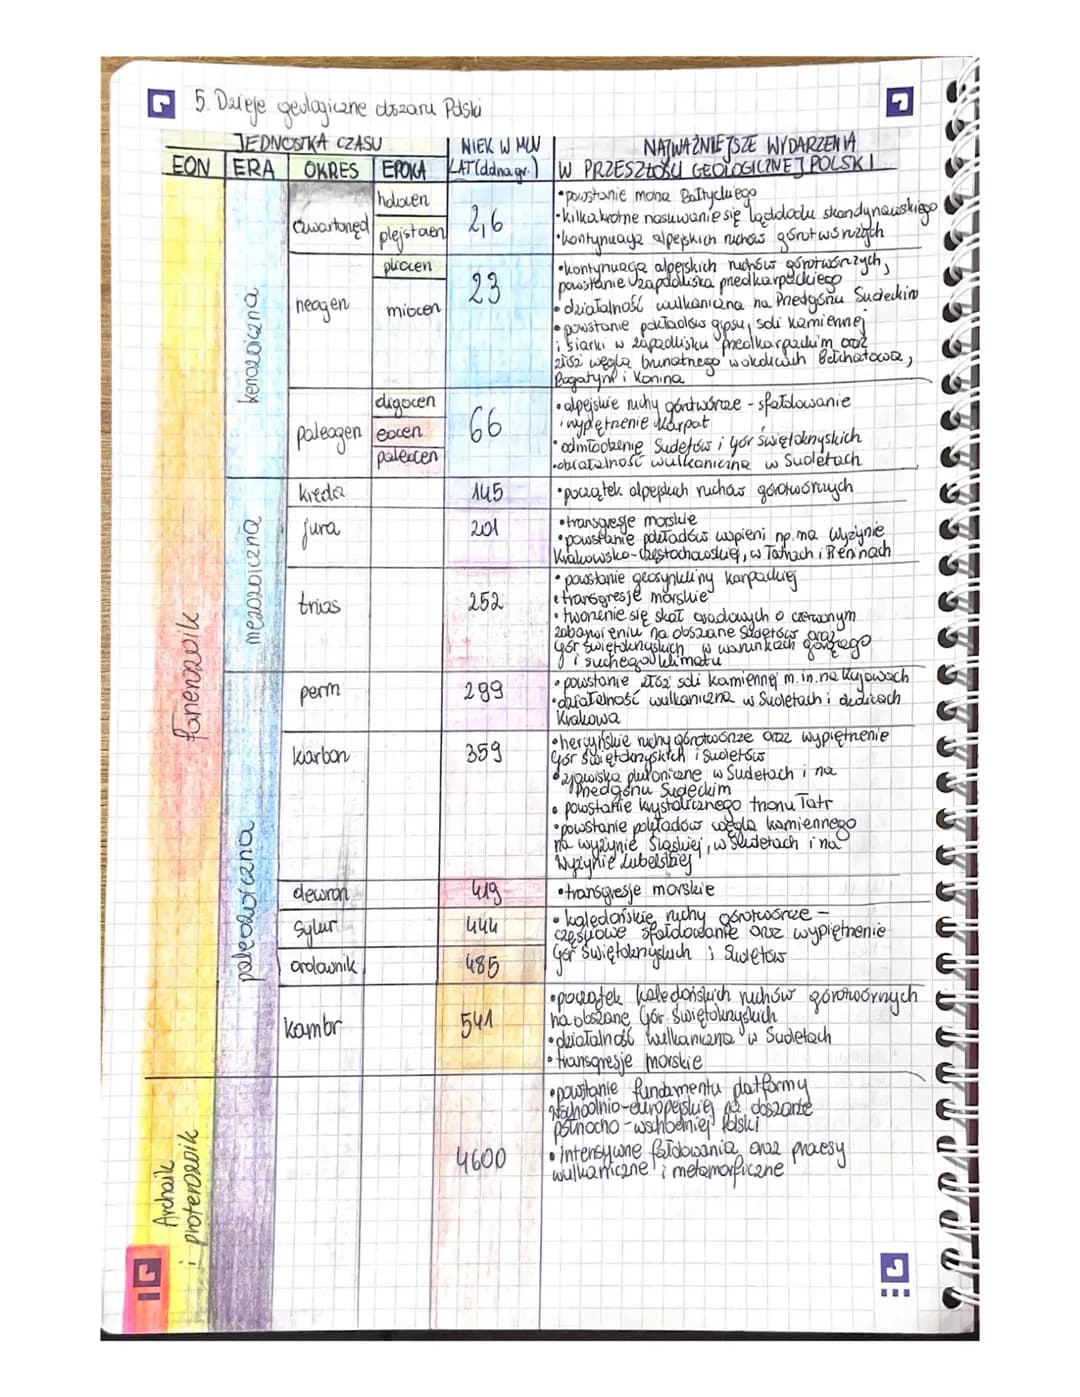 5. Dzieje geologiczne obszaru Polski
JEDNOSTKA CZASU
WIEK W MLN
LAT (dolna gr.)
NAJWAŻNIEJSZE WYDARZENIA
W PRZESZŁOŚCI GEOLOGICZNEJ POLSKI
EON ERA OKRES EPOKA
fanerozoik
kenozoiczna
czwartorzęd
holocen
plejstocen
2,6
•powstanie morza Bałtyckiego
•kilkakrotne nasuwanie się lądolodu skandynawskiego
•kontynuacja alpejskich ruchów górotwórczych
neogen
pliocen
miocen
23
•kontynuacja alpejskich ruchów górotwórczych,
powstanie zapadliska przedkarpackiego
•działalność wulkaniczna na Przedgórzu Sudeckim
•powstanie pokładów gipsu, soli kamiennej
i siarki w zapadlisku przedkarpackim oraz
złóż węgla brunatnego w okolicach Bełchatowa,
Bogatyni i Konina
paleogen
oligocen
eocen
paleocen
66
•alpejskie ruchy górotwórcze - sfałdowanie
i wypiętrzenie Karpat
•odmłodzenie Sudetów i Gór Świętokrzyskich
•działalność wulkaniczna w Sudetach
mezozoiczna
kreda
145
•początek alpejskich ruchów górotwórczych
jura
201
•transgresje morskie
•powstanie pokładów wapieni np. na Wyżynie
Krakowsko-Częstochowskiej, w Tatrach i Pieninach
trias
252
•powstanie geosynkliny karpackiej
•transgresje morskie
•tworzenie się skał osadowych o czerwonym
zabarwieniu na obszarze Sudetów oraz
Gór Świętokrzyskich w warunkach gorącego
i suchego klimatu
paleozoiczna
perm
299
•powstanie złóż soli kamiennej m.in. na Kujawach
•działalność wulkaniczna w Sudetach i okolicach
Krakowa
karbon
359
•hercyńskie ruchy górotwórcze oraz wypiętrzenie
Gór Świętokrzyskich i Sudetów
•zjawiska plutoniczne w Sudetach i na
Przedgórzu Sudeckim
•powstanie krystalicznego trzonu Tatr
•powstanie pokładów węgla kamiennego
na Wyżynie Śląskiej, w Sudetach i na
Wyżynie Lubelskiej
dewon
419
•transgresje morskie
sylur
444
•kaledońskie ruchy górotwórcze -
częściowe sfałdowanie oraz wypiętrzenie
Gór Świętokrzyskich i Sudetów
ordownik
485
kambr
541
•początek kaledońskich ruchów górotwórczych
na obszarze Gór Świętokrzyskich
•działalność wulkaniczna w Sudetach
•transgresje morskie
Archaik
i proterozoik
4600
•powstanie fundamentu platformy
wschodnio-europejskiej na obszarze
północno-wschodniej Polski
•intensywne fałdowania oraz procesy
wulkaniczne i metamorficzne